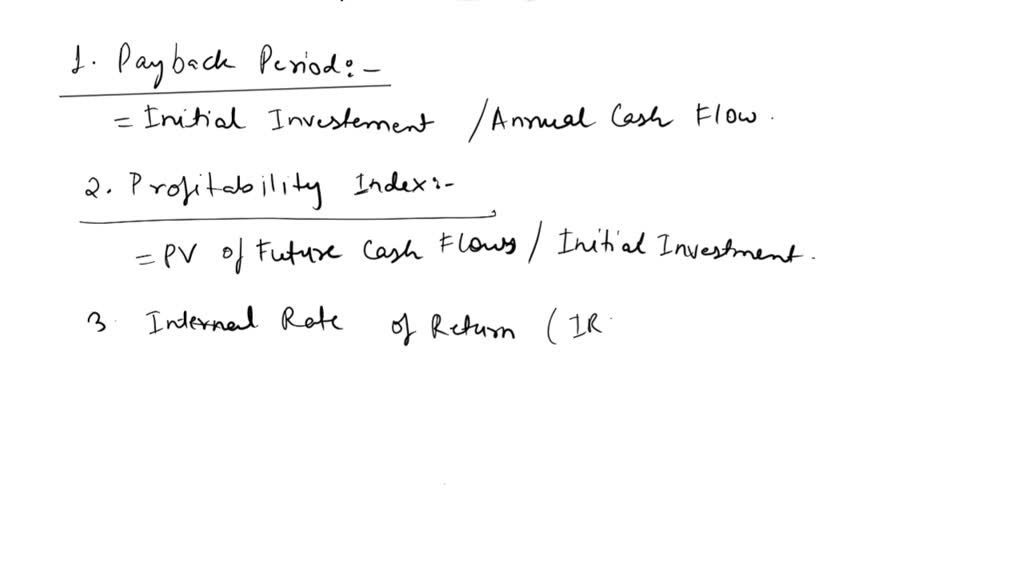 1. Payback Period:-
= Initial Investement / Annual Cash Flow.
2. Profitability Index:-
= PV of Future Cash Flows / Initial Investment.
3. Internal Rate of Return (IR